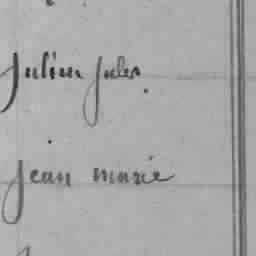 Julien Jules.
Jean Marie